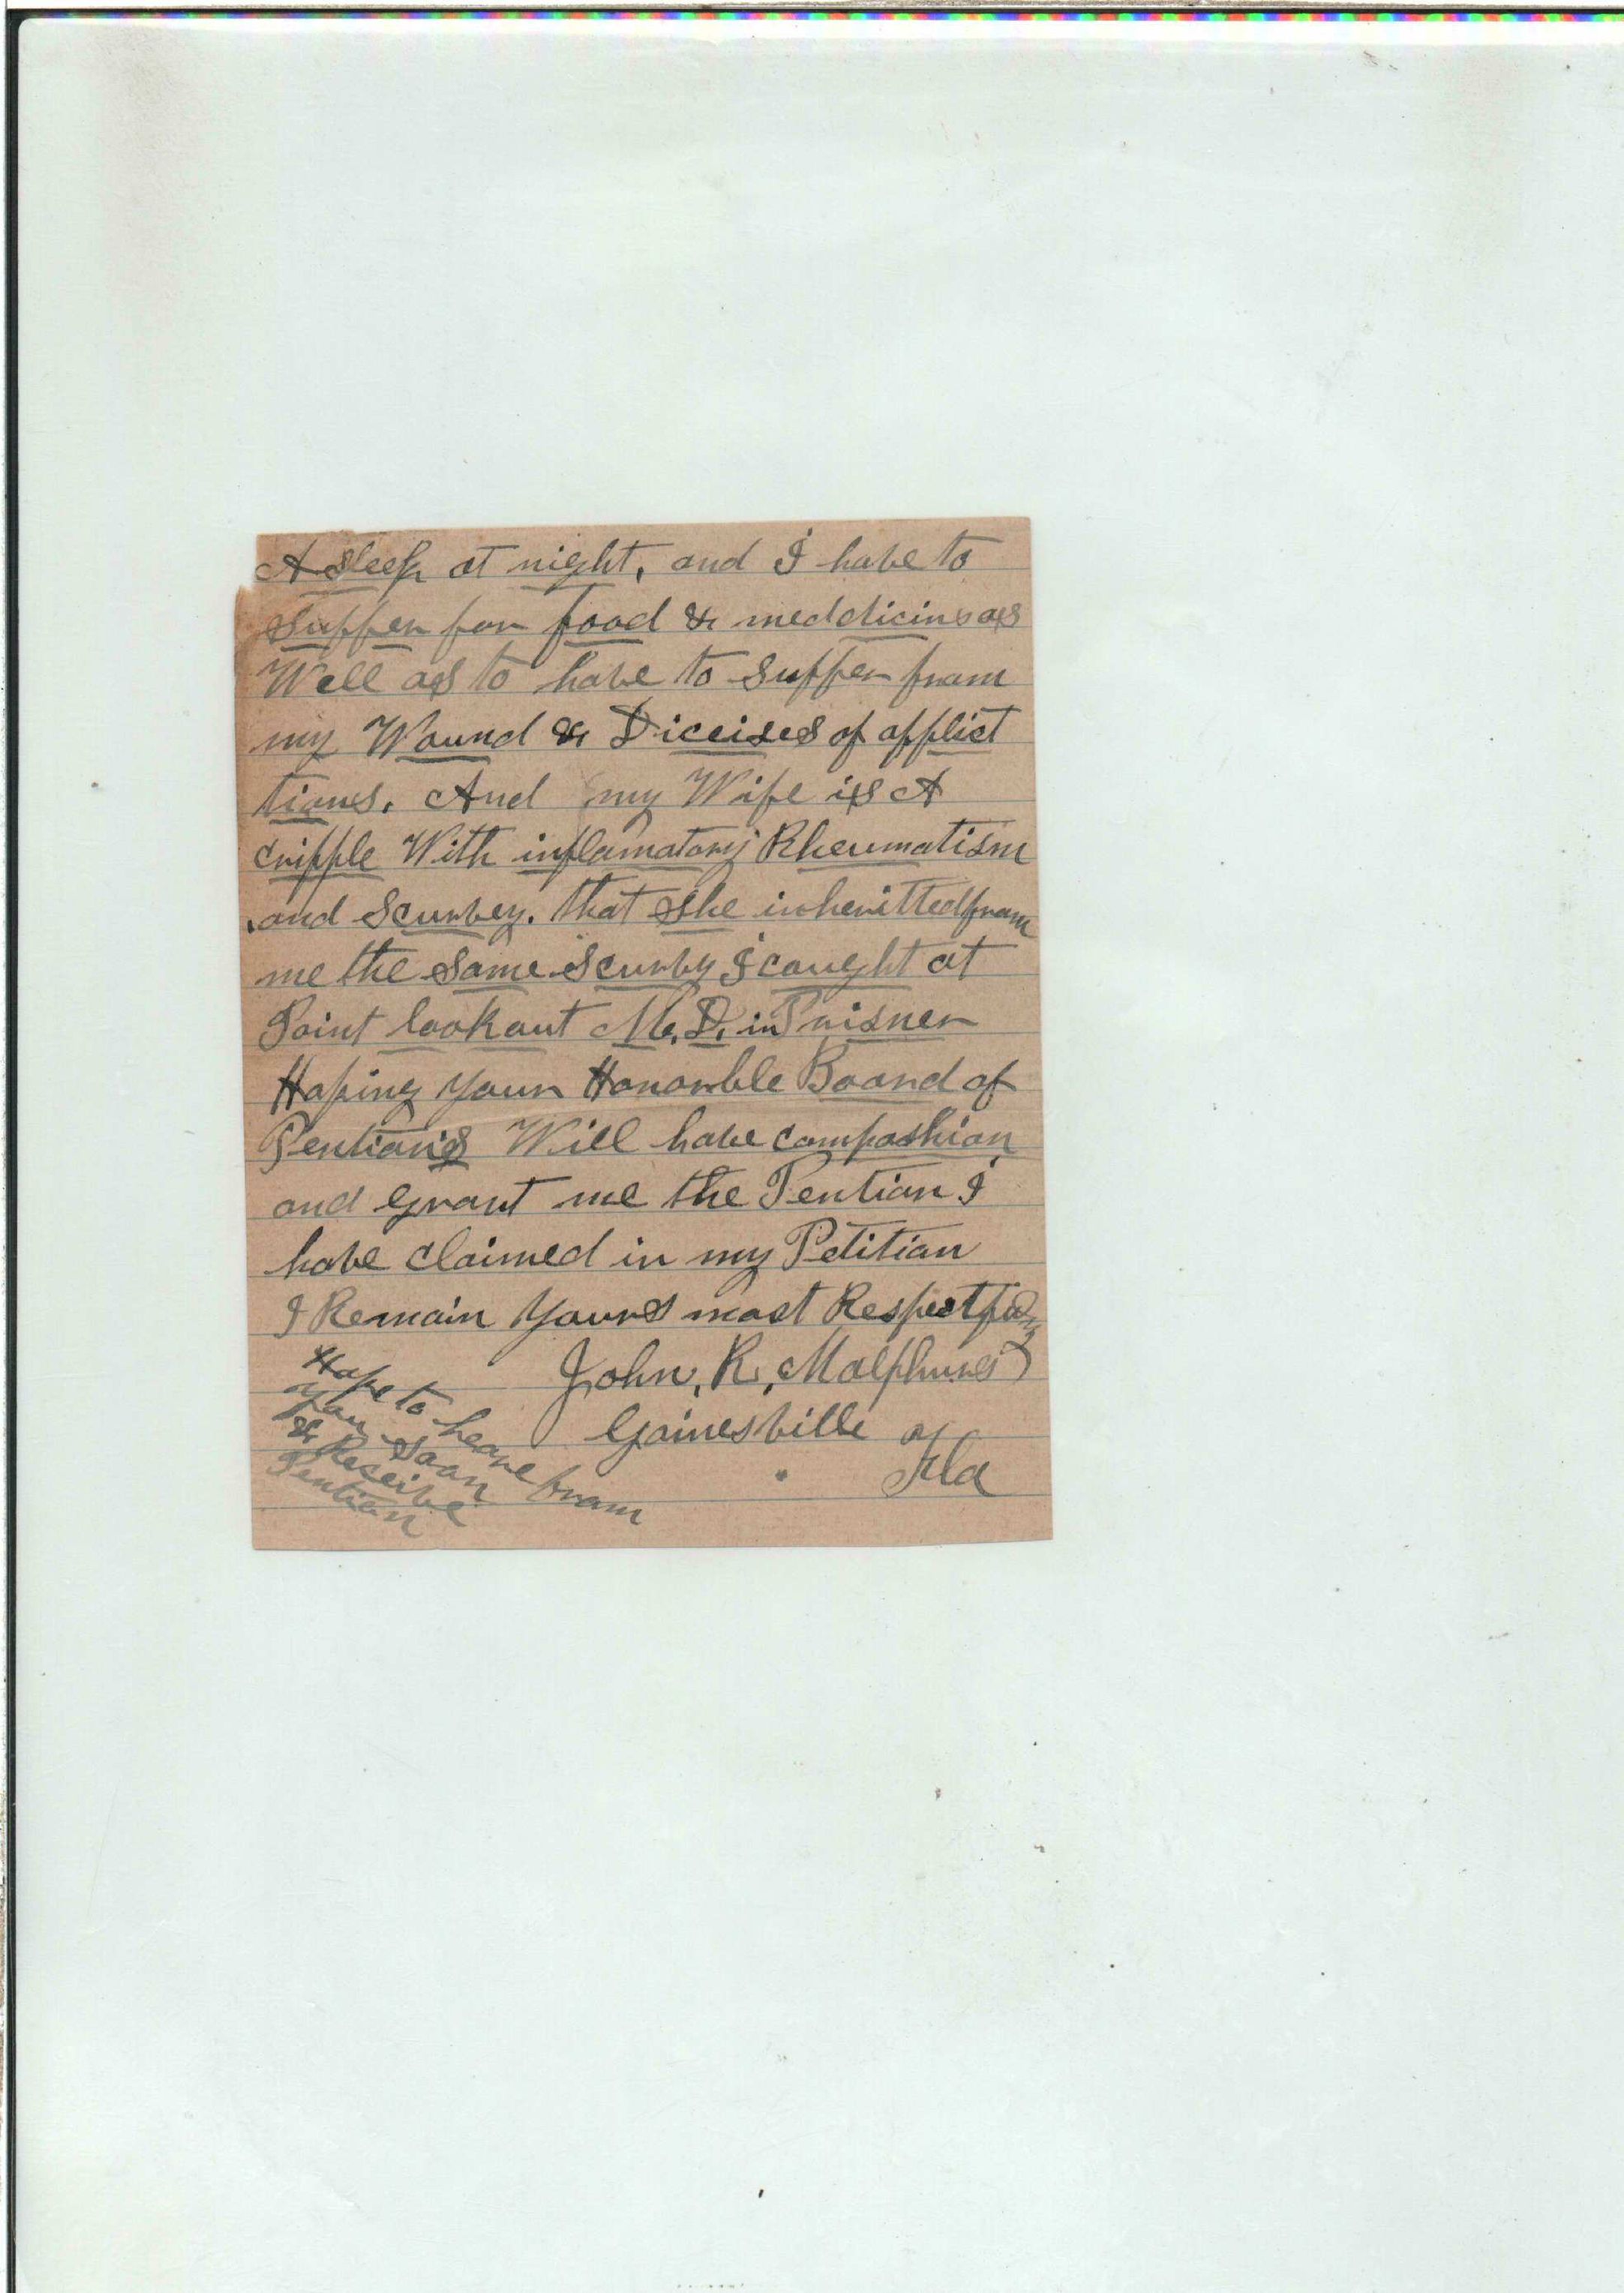 A sleep at night, and I have to
suffer for food & meddicins as
Well as to have to suffer from
my Wound & Diceises of afflict
tions. And my Wife is A
cripple With inflamatory Rheumatism
and Scurvey. that she inherittedfrom
me the same Scurvy I caught at
Point lookout M.D. in Prisner
Hoping your Honorble Board of
Pentions Will have compashion
and grant me the Pention I
have claimed in my Petition
I Remain Yours most Respectfully
John, R, Malphurs
Gainesville
Fla
Hope to heare from
you soon
& Receive
Pention